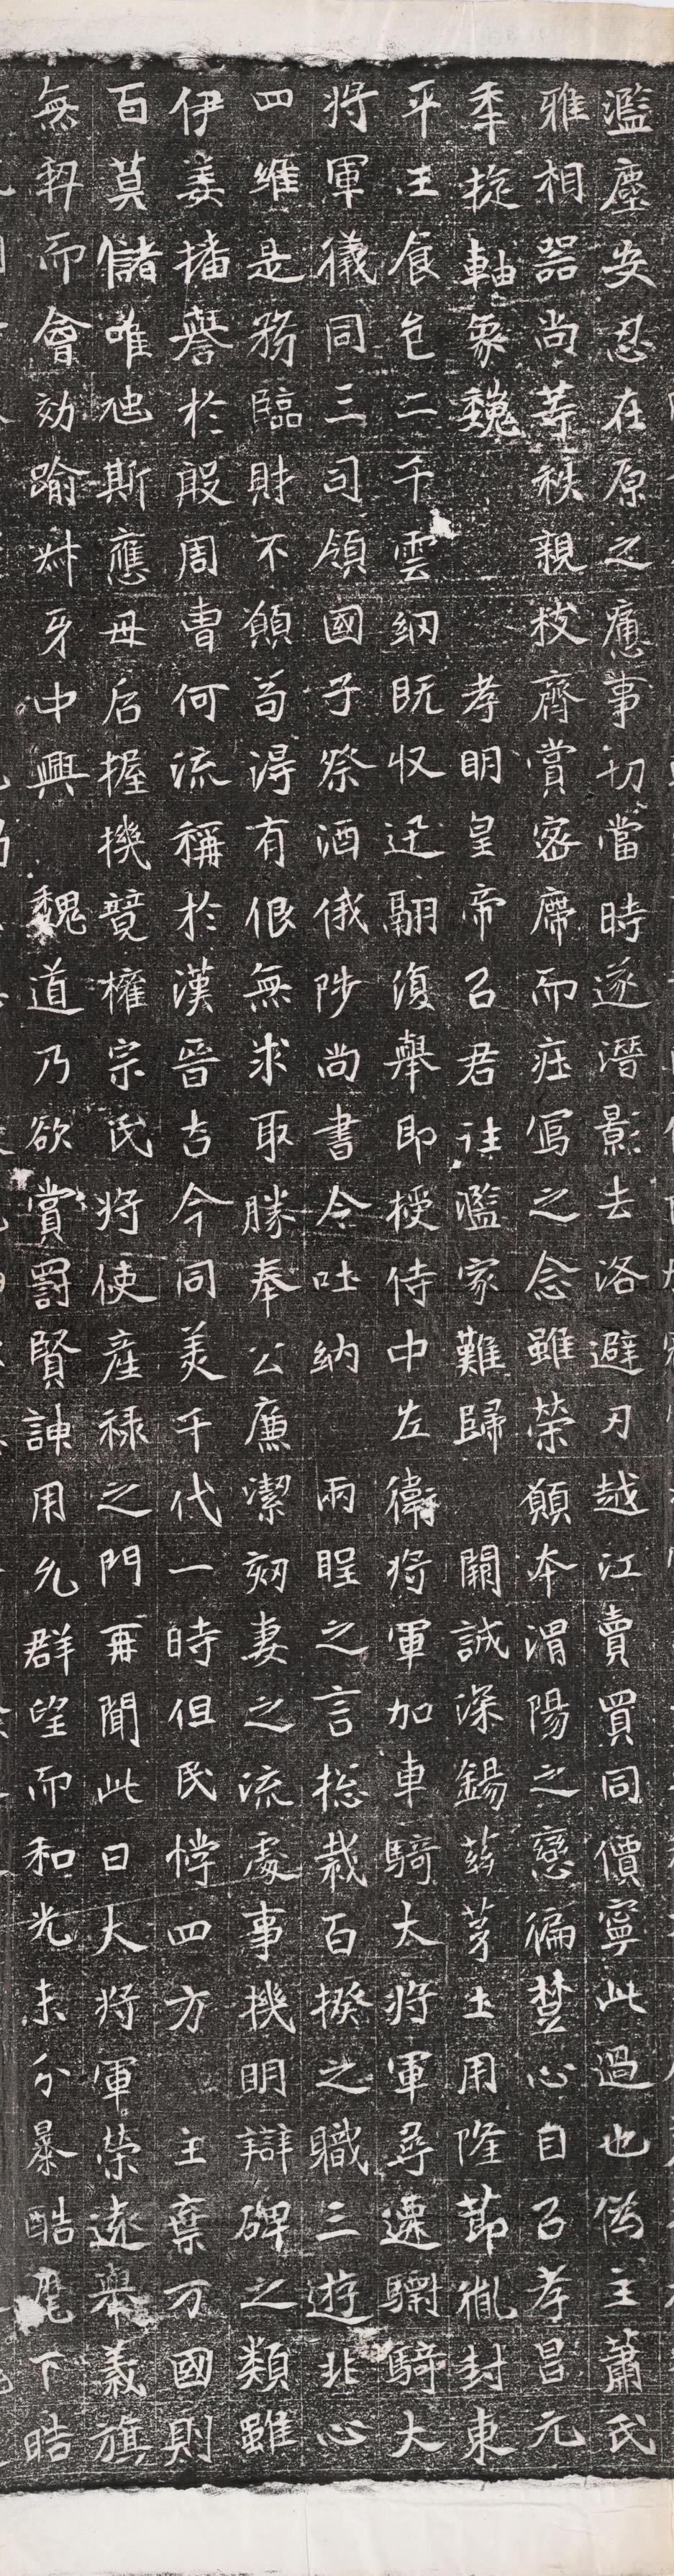 濫塵安忍在原之慮事切當時遂潛影去洛避刃越江賣買同價寧此過也偽主蕭氏
雅相器尚等秩親枝齊賞密席而莊寫之念雖榮願本渭陽之戀徧楚心目以孝昌元
年旋軸象魏 孝明皇帝以君往濫家難歸 闕誠深錫茲茅土用隆節胤封東
平王食邑二千雲綱既收迅翮復舉即授侍中左衛將軍加車騎大將軍尋遷驃騎大
將軍儀同三司領國子祭酒俄陟尚書令吐納 兩䁐之言揔裁百揆之職三遊北心
四維是務臨財不願苟得有很無求取勝奉公廉潔刻妻之流處事機明辯碑之類雖
伊姜播譽於殷周曹何流稱於漢晉古今同美千代一時但民悖四方 主棄万國則
百莫儲唯虵斯應毋后握機競權宗氏將使產祿之門再聞此日大將軍榮遠舉義旗
無契而會効踰叔牙中興 魏道乃欲賞罰賢諫用允群望而和光未分暴酷麾下皓